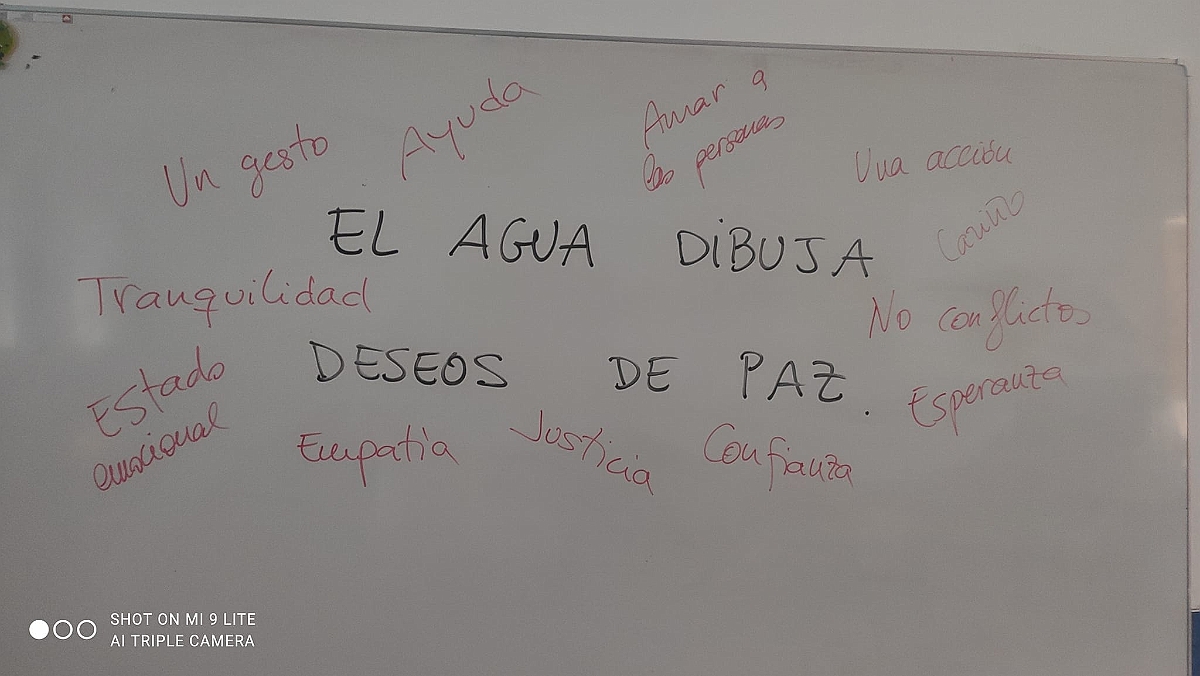 Un gesto
Ayuda
Amar a
las personas
Una acción
Cariño
EL AGUA DIBUJA
Tranquilidad
No conflictos
DESEOS DE PAZ.
Estado
emocional
Esperanza
Empatía
Justicia
Confianza
SHOT ON MI 9 LITE
AI TRIPLE CAMERA